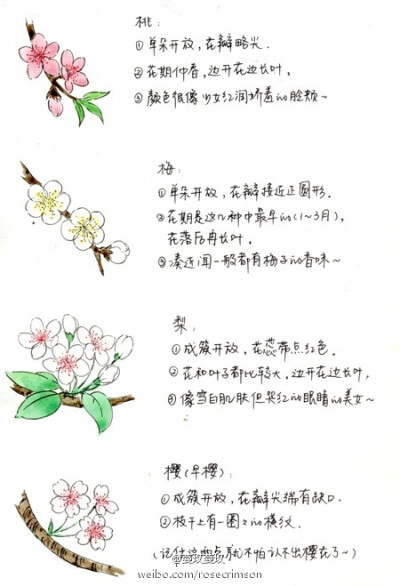 桃:
①单朵开放,花瓣略尖.
②花期仲春,边开花边长叶,
③颜色很像少女红润娇羞的脸颊~
梅:
①单朵开放,花瓣接近正圆形.
②花期是这几种中最早的(1~3月),
花落后再长叶.
③凑近闻一般都有梅子的香味~
梨:
①成簇开放,花蕊带点红色.
②花和叶子都比较大,边开花边长叶,
③像雪白肌肤但哭红的眼睛的美女~
樱(早樱):
①成簇开放,花瓣尖端有缺口.
②枝干上有一圈々的横纹.
(记住这两点就不怕认不出樱花了~)
weibo.com/rosecrimson